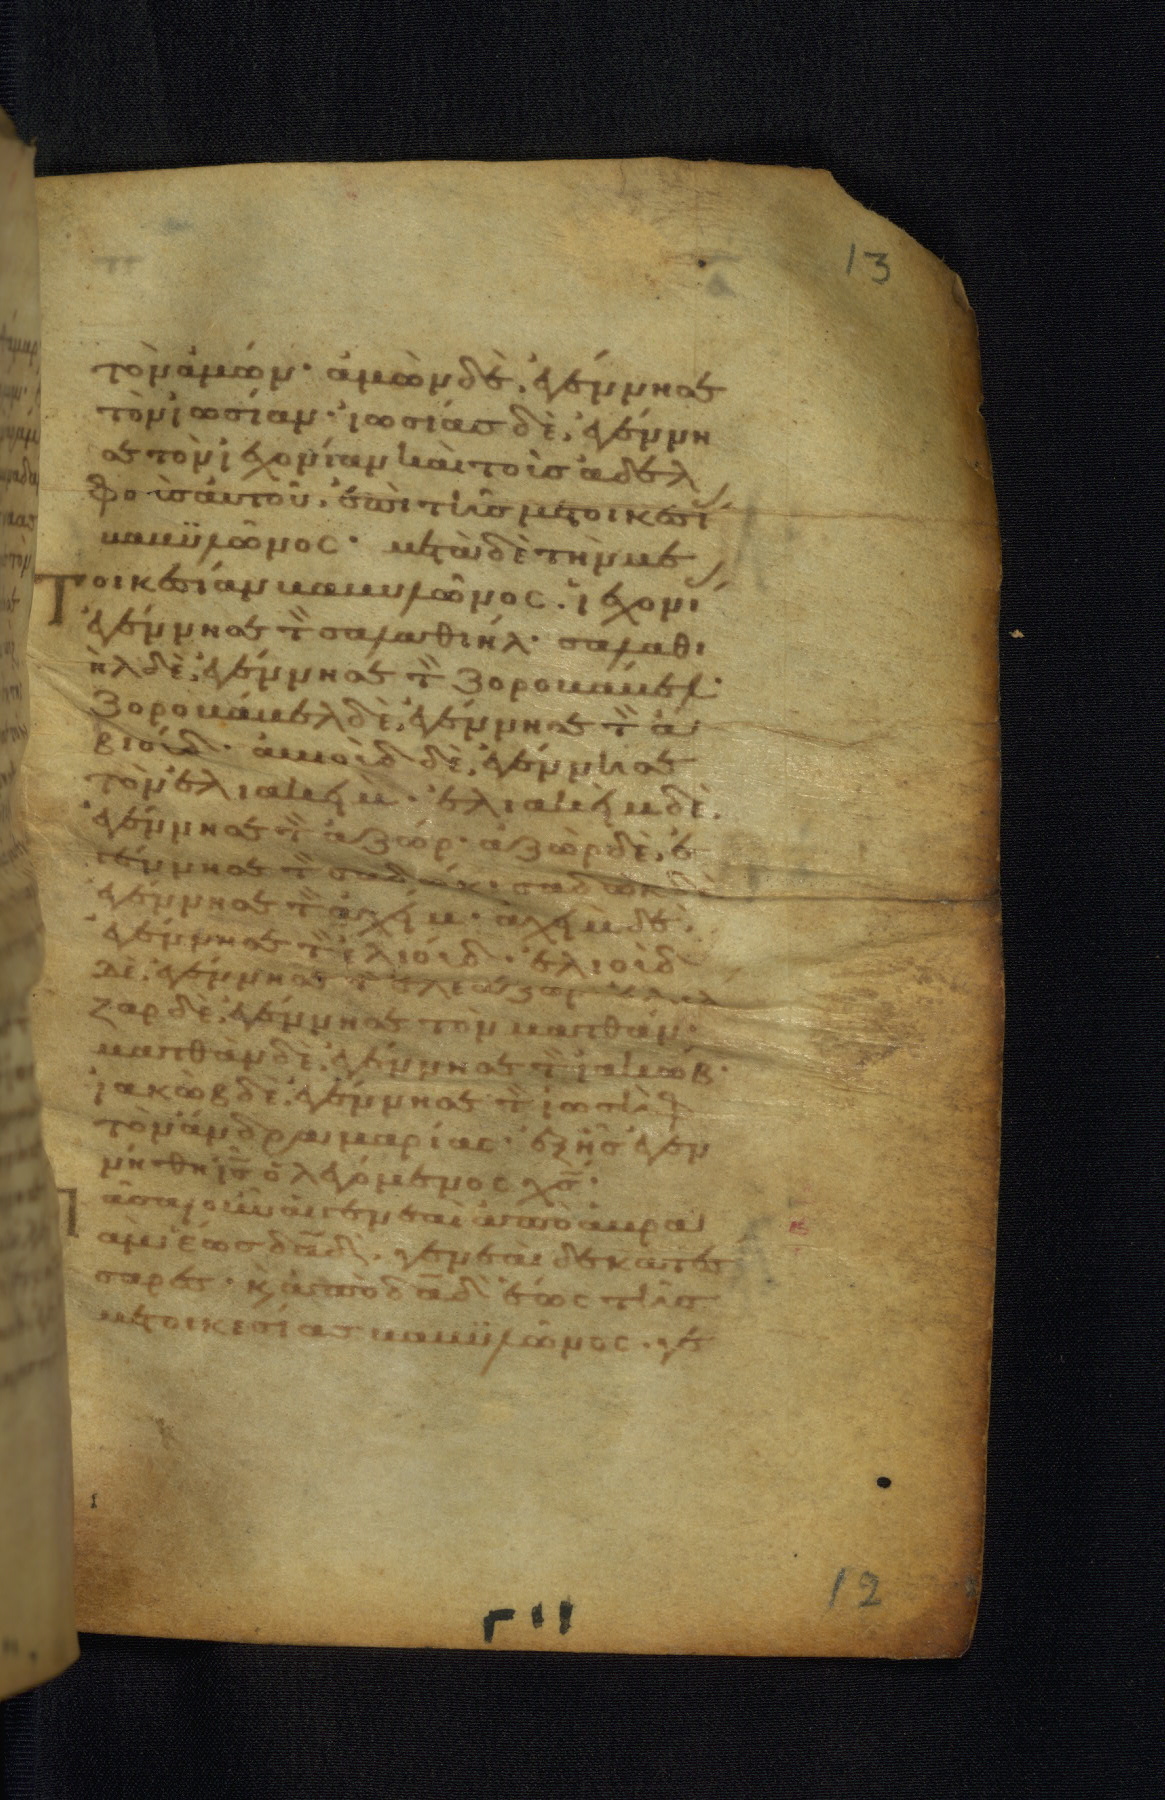 13
τὸν ἀμών· ἀμὼν δὲ, ἐγέννησε
τὸν ἰωσίαν· ἰωσίας δὲ, ἐγέννη
σε τὸν ἰεχονίαν καὶ τοὶς ἀδελ
φοὶς αὐτοῦ, ἐπὶ τῆς μετοικεσί
βαβϋλῶνος· μετὰ δὲ τὴν με
τοικεσίαν βαβυλῶνος. ἰεχονί
ἐγέννησε τὸ σαλαθιήλ· σαλαθι
ὴλ δὲ, ἐγέννησε τὸ ζοροβάβελ·
ζοροβάβελ δὲ, ἐγέννησε τὸ ἀ
βιούδ· ἀβιοὺδ δὲ, ἐγέννησε
τὸν ἐλιακείμ· ἐλιακεὶμ δὲ,
ἐγέννησε τὸ ἀζώρ· ἀζὼρ δὲ, ἐ
γέννησε τὸ σαδώκ· σαδὼκ δὲ
ἐγέννησε τὸ ἀχείμ· ἀχεὶμ δὲ,
ἐγέννησε τὸ ἐλιούδ· ἐλιοὺδ
δὲ, ἐγέννησε τὸ ἐλεάζαρ·
ζαρ δὲ, ἐγέννησε τὸν ματθάν·
ματθὰν δὲ, ἐγέννησε τὸ ἰακώβ·
ἰακὼβ δὲ, ἐγέννησε τὸ ἰωσὴφ
τὸν ἄνδρα μαρίας· ἐξ ἧς ἐγεν
νήθη ις ὁ λεγόμενος χς·
Πᾶσαι οὖν αἱ γενεαὶ ἀπὸ ἀβρα
ὰμ ἕως δαδ, γενεαὶ δεκατέσ
σαρες· κ ἀπὸ δαδ ἕως τῆς
μετοικεσίας βαβϋλῶνος· γε
12